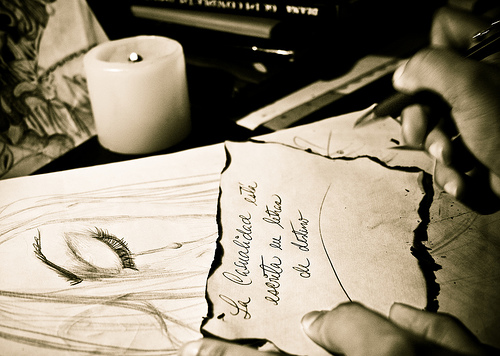 La Casualidad esta
escrita en letra
de destino